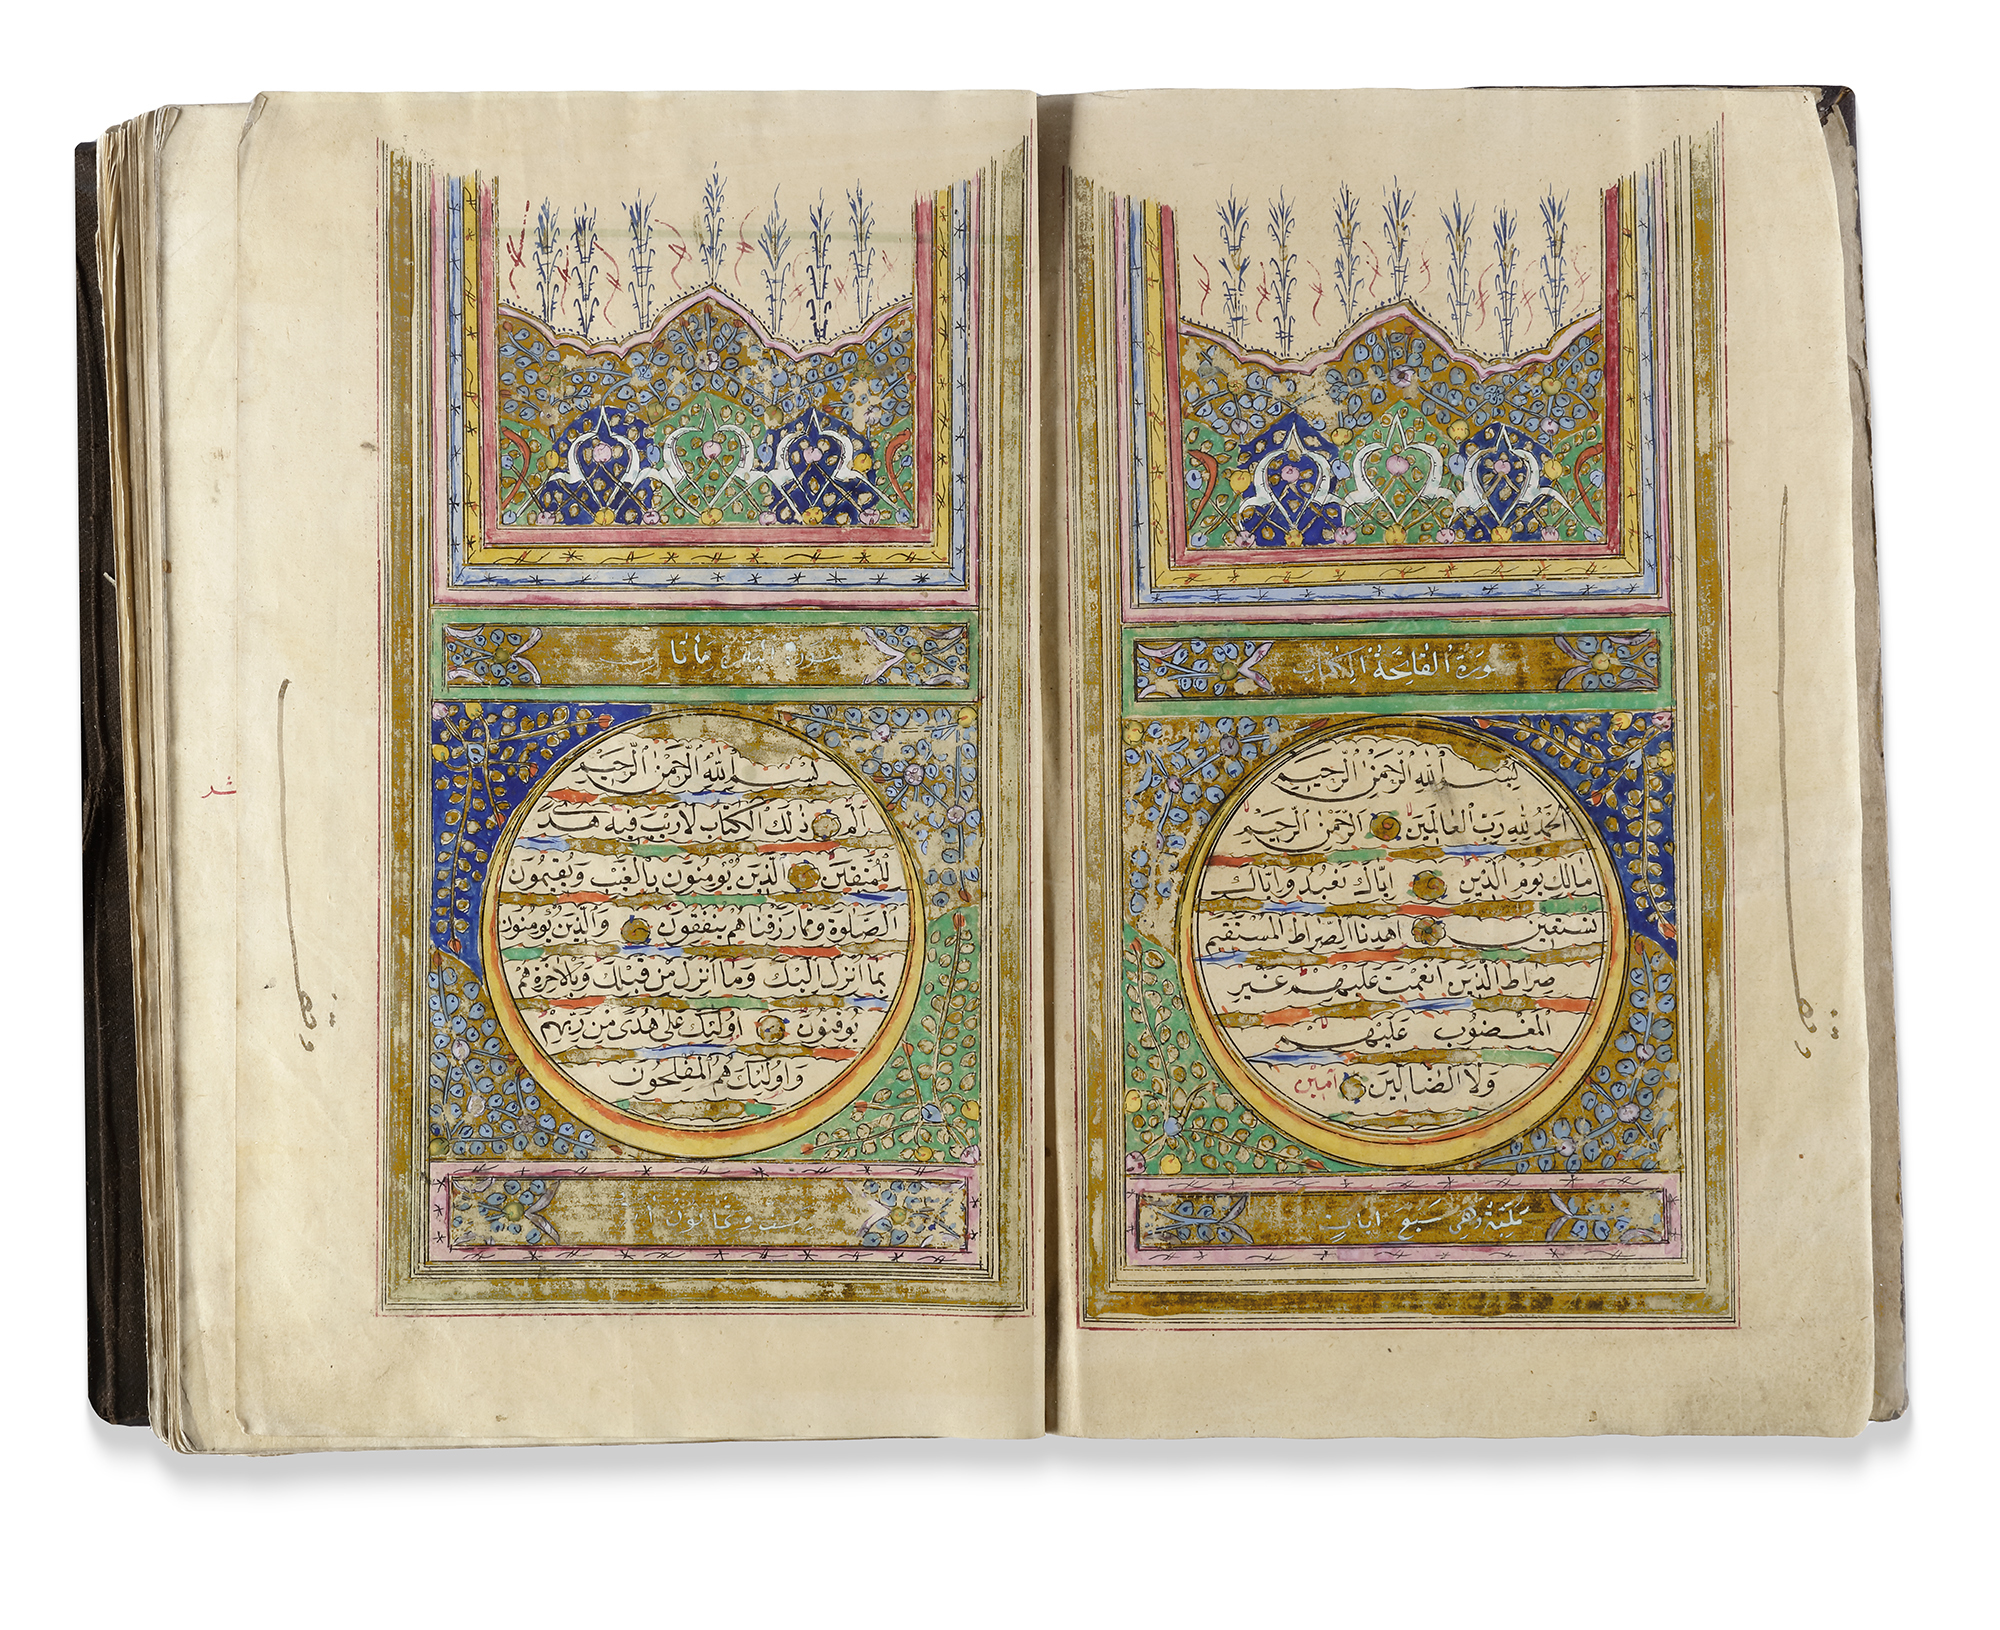 سورة الفاتحة الكتاب
بسم الله الرحمن الرحيم
الحمد لله رب العالمين الرحمن الرحيم
مالك يوم الدين اياك نعبد واياك
نستعين اهدنا الصراط المستقيم
صراط الذين انعمت عليهم غير
المغضوب عليهم
ولا الضالين امين
مكية وهي سبع ايات
وقف
سورة البقرة مائتا
بسم الله الرحمن الرحيم
الم ذلك الكتاب لا ريب فيه هدى
للمتقين الذين يؤمنون بالغيب ويقيمون
الصلوة ومما رزقناهم ينفقون والذين يؤمنون
بما انزل اليك وما انزل من قبلك وبالاخرة هم
يوقنون اولئك على هدى من ربهم
واولئك هم المفلحون
ست وثمانون
وقف